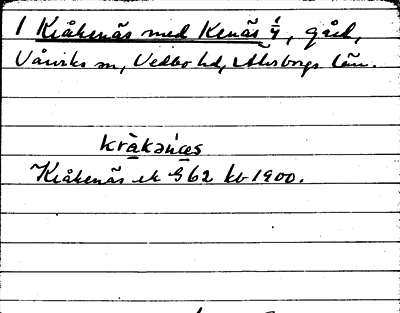 1 Kråkenäs med Kenäs 1/4, gård,
Vårviks sn, Vedbo hd, Älvsborgs län.
kråkənæs
Kråkenäs ek G 62 kb 1900.